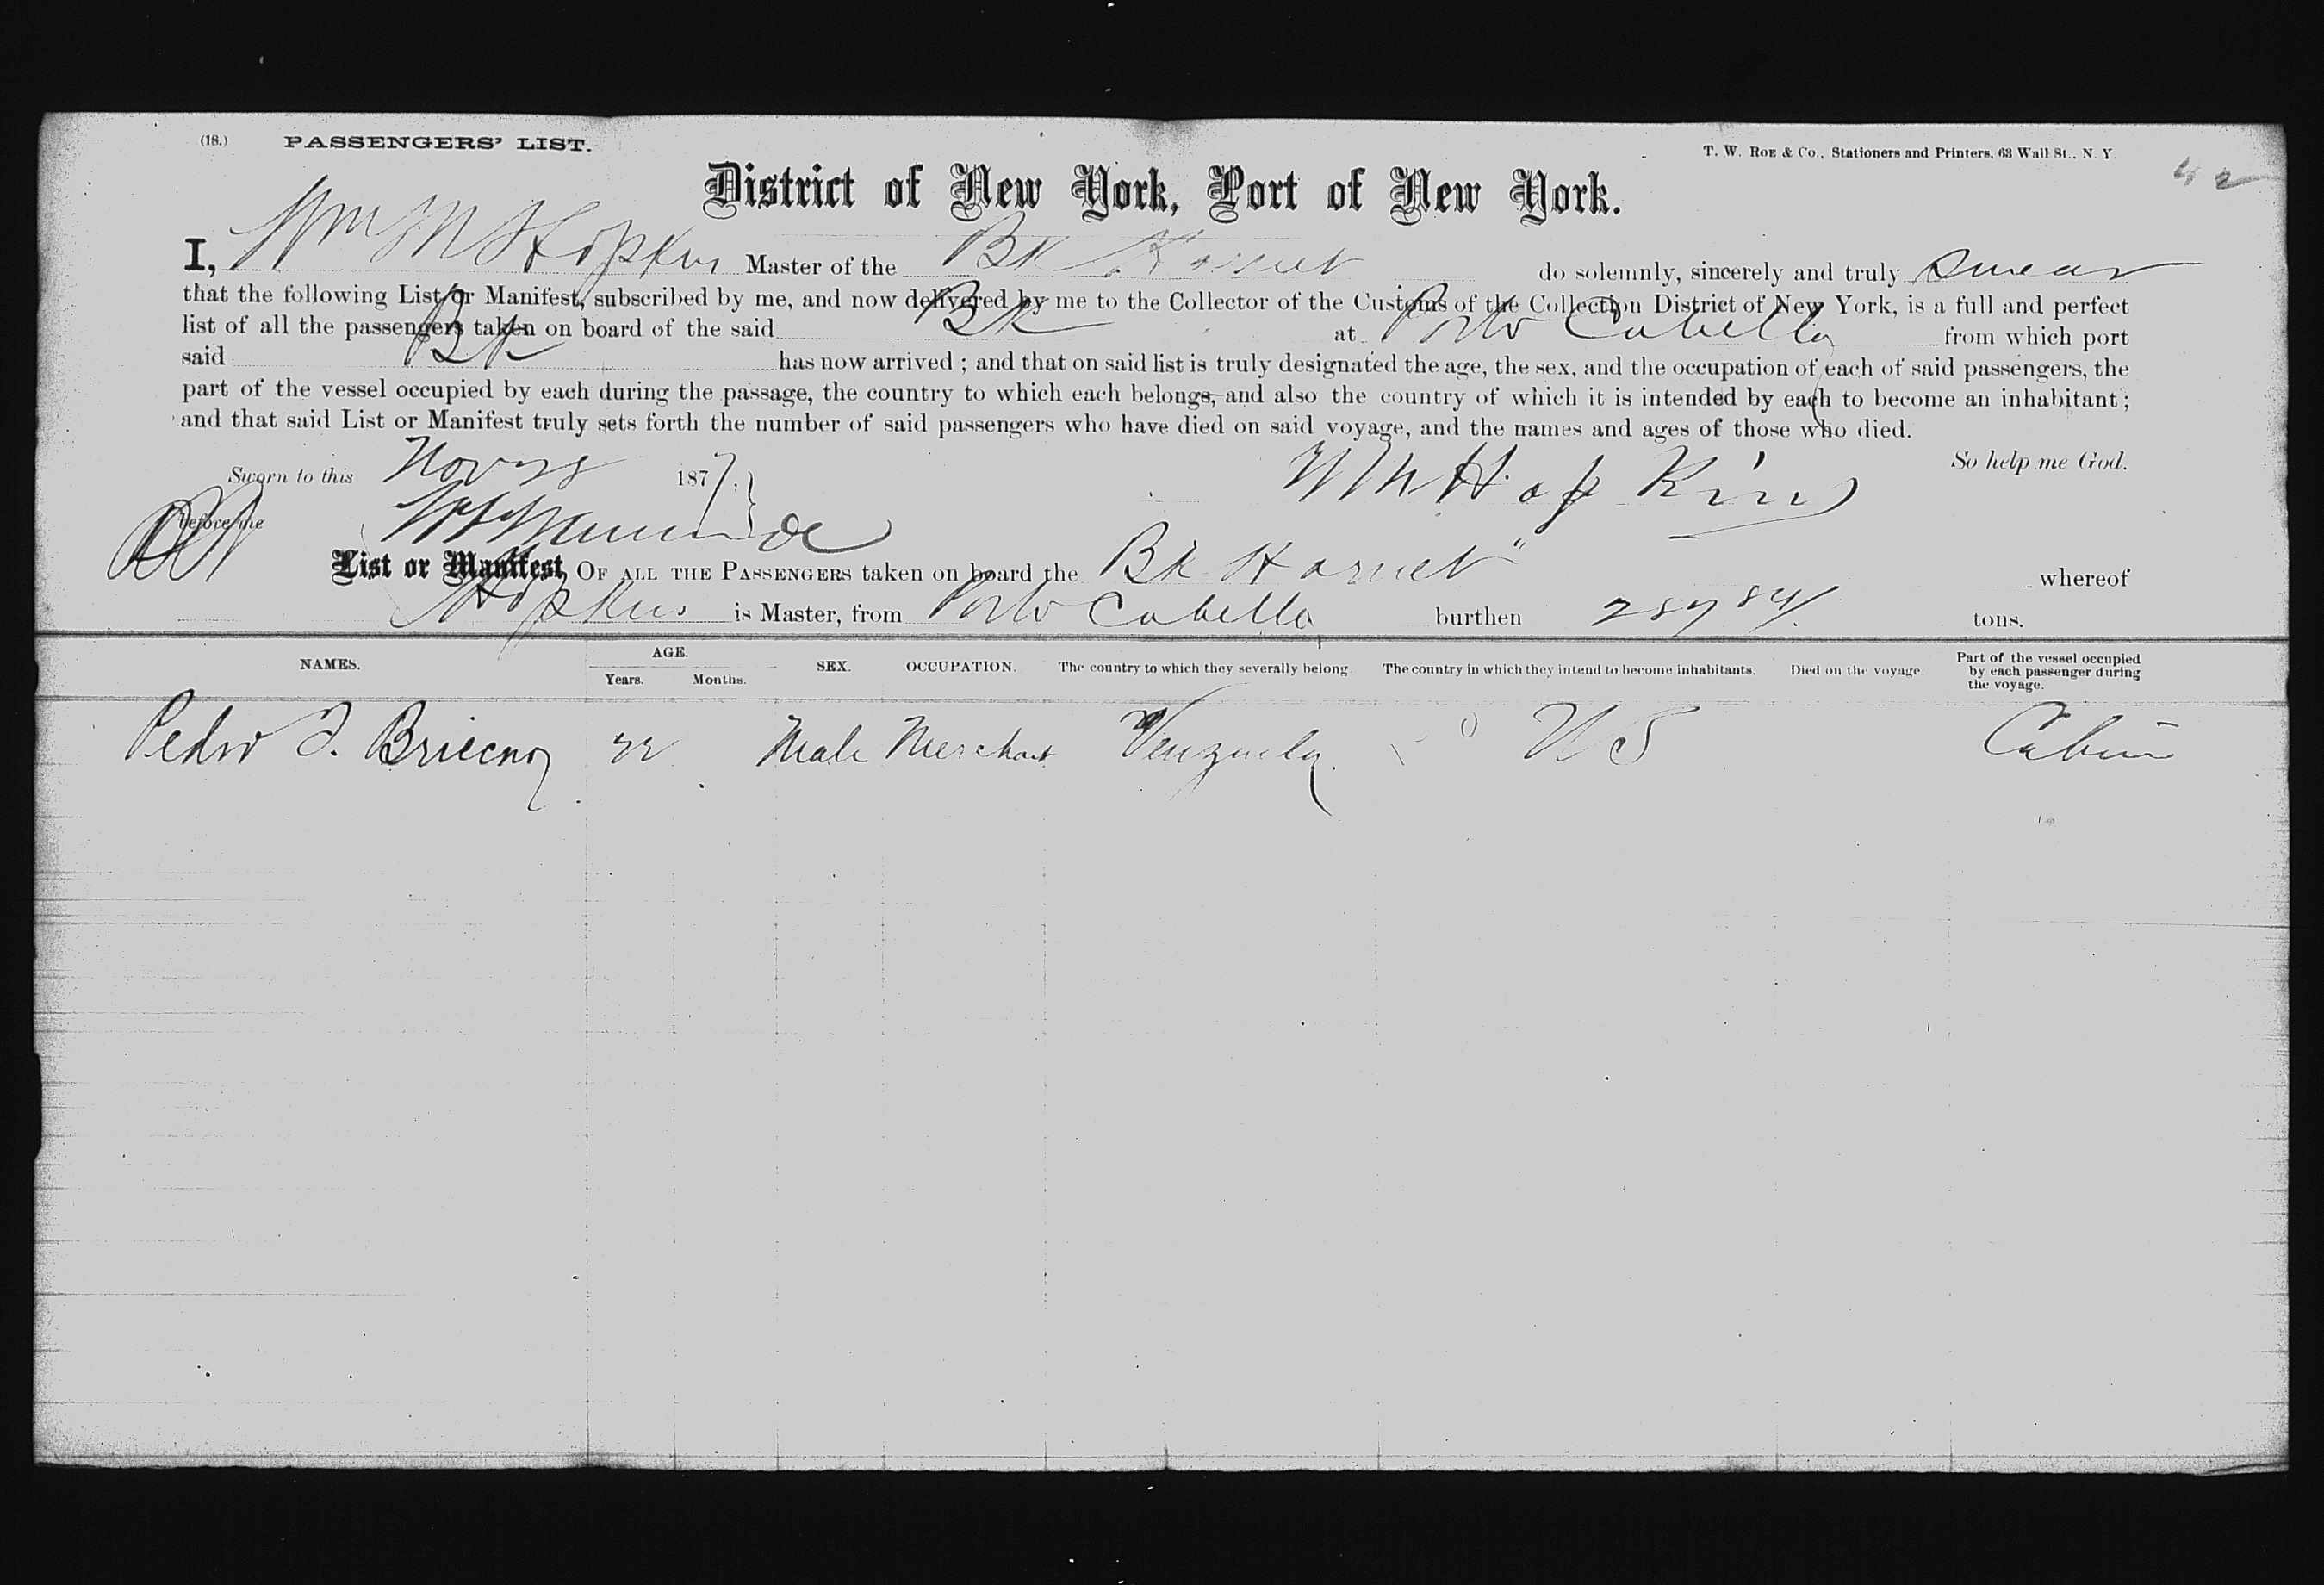 (18.) PASSENGERS' LIST. T. W. ROE & Co., Stationers and Printers, 63 Wall St., N. Y.
42
District of New York, Port of New York.
I, Wm M Hopkins Master of the Bk Hornet do solemnly, sincerely and truly swear
that the following List or Manifest, subscribed by me, and now delivered by me to the Collector of the Customs of the Collection District of New York, is a full and perfect
list of all the passengers taken on board of the said Bk at Porto Cabello from which port
said Bk has now arrived ; and that on said list is truly designated the age, the sex, and the occupation of each of said passengers, the
part of the vessel occupied by each during the passage, the country to which each belongs, and also the country of which it is intended by each to become an inhabitant ;
and that said List or Manifest truly sets forth the number of said passengers who have died on said voyage, and the names and ages of those who died.
So help me God.
Sworn to this Nov 1877. Wm Hopkins
before me
List or Manifest OF ALL THE PASSENGERS taken on board the Bk Hornet" whereof
Hopkins is Master, from Porto Cabello burthen tons.
NAMES. AGE. SEX. OCCUPATION. The country to which they severally belong The country in which they intend to become inhabitants. Died on the voyage Part of the vessel occupied by each passenger during the voyage.
Years. Months.
Pedro Male Merchant Venzuela U S Cabin